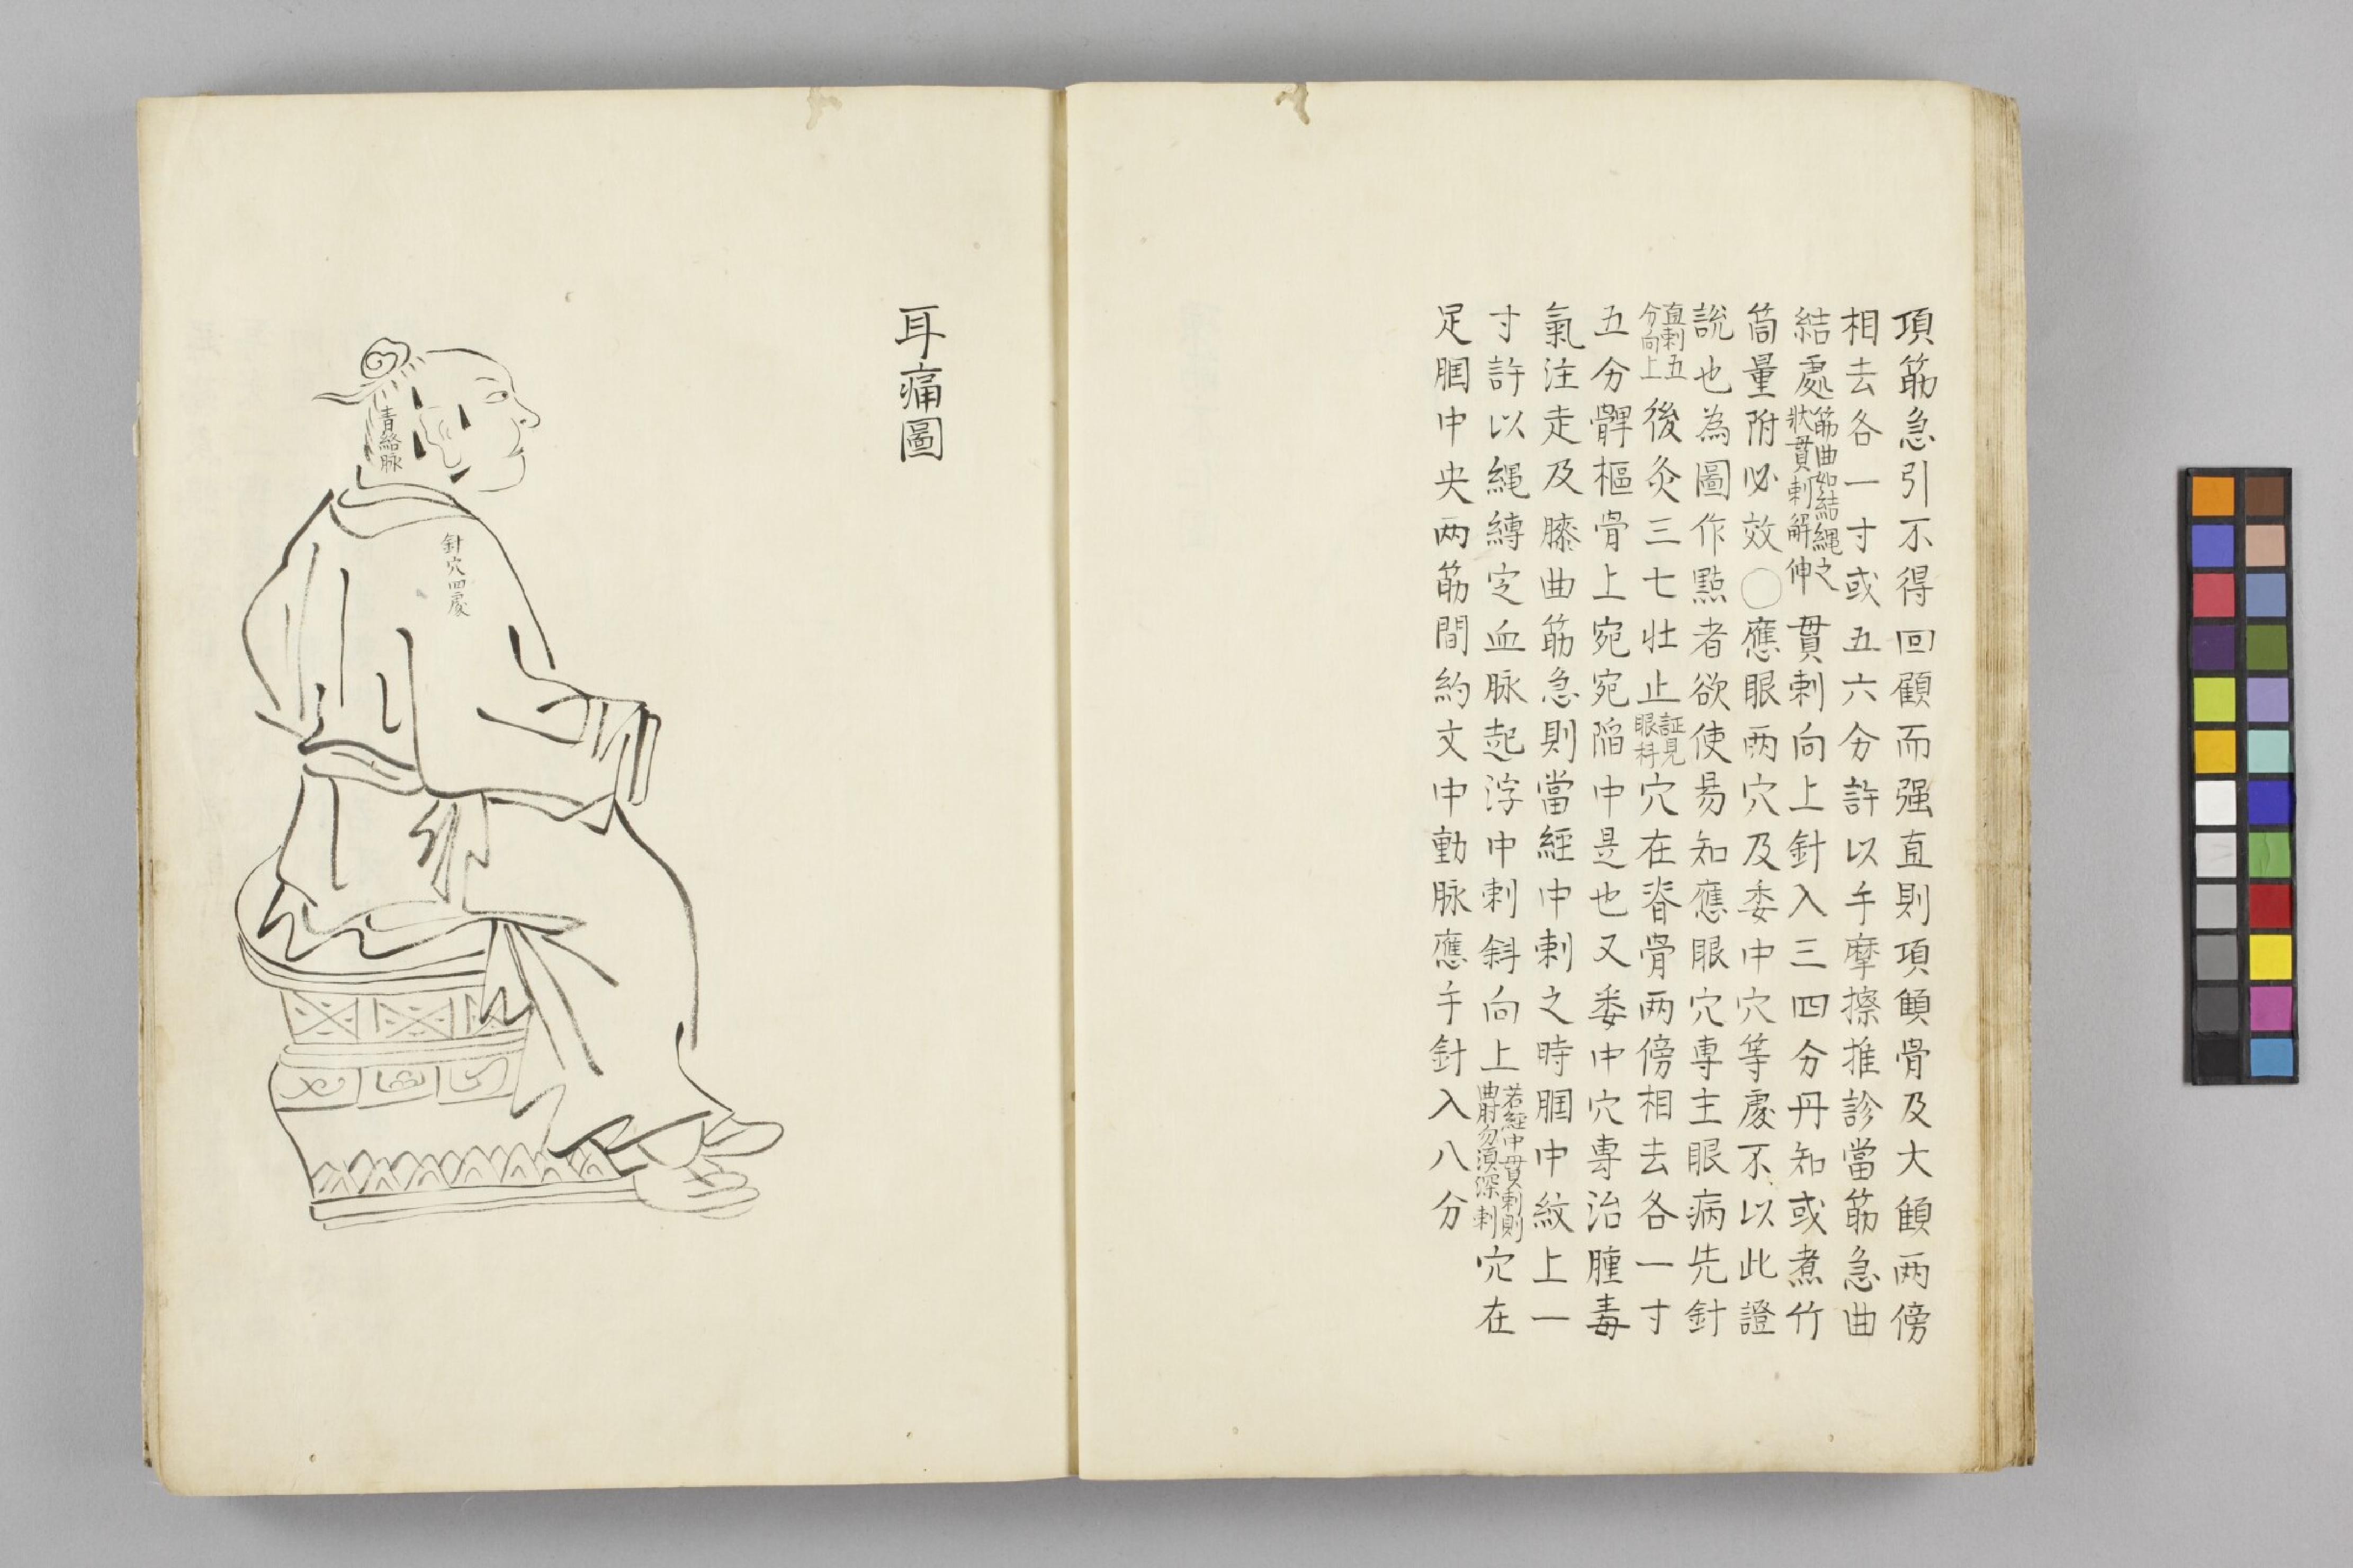 項筋急引不得回顧而强直則項顀骨及大顀两傍
相去各一寸或五六分許以手摩擦推診當筋急曲
結處筋曲如結繩之狀貫刺解伸貫刺向上針入三四分丹知或煮竹
筒量附必效○應眼两穴及委中穴等處不以此證
說也為圖作㸃者欲使易知應眼穴專主眼病先針
直刺五分向上後灸三七壮止証見眼科穴在脊骨两傍相去各一寸
五分髀樞骨上宛宛陷中是也又委中穴專治腫毒
氣注走及膝曲筋急則當經中刺之時膕中紋上一
寸許以繩縛定血脉起浮中刺斜向上若經中貫刺則曲肘勿須深刺穴在
足膕中央两筋間約文中動脉應手針入八分
耳痛圖
青絡脉
針穴四處